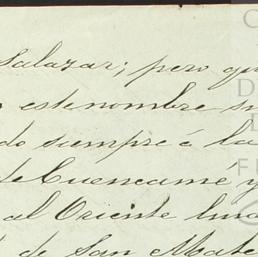 Salazar; pero que
este nombre su
do siempre á la
de Cuencamé y
al Oriente lin
de San Mate